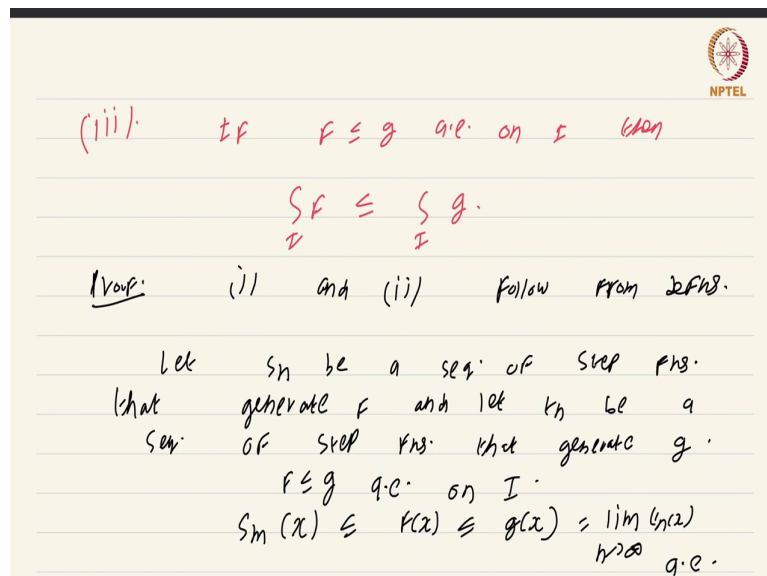 NPTEL
(iii). If F ≤ g a.e. on I then
∫_I F ≤ ∫_I g.
Proof: (i) and (ii) Follow From defns.
Let Sn be a seq. OF Step Fns.
that generate F and let tn be a
Seq. OF Step Fns. that generate g.
F ≤ g a.e. on I.
Sm(x) ≤ F(x) ≤ g(x) = lim tn(x)
n→∞ a.e.